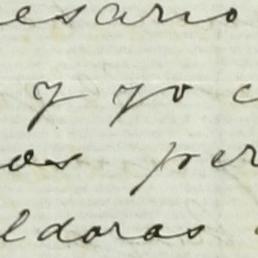 esario
y yo c
os per
ldoras